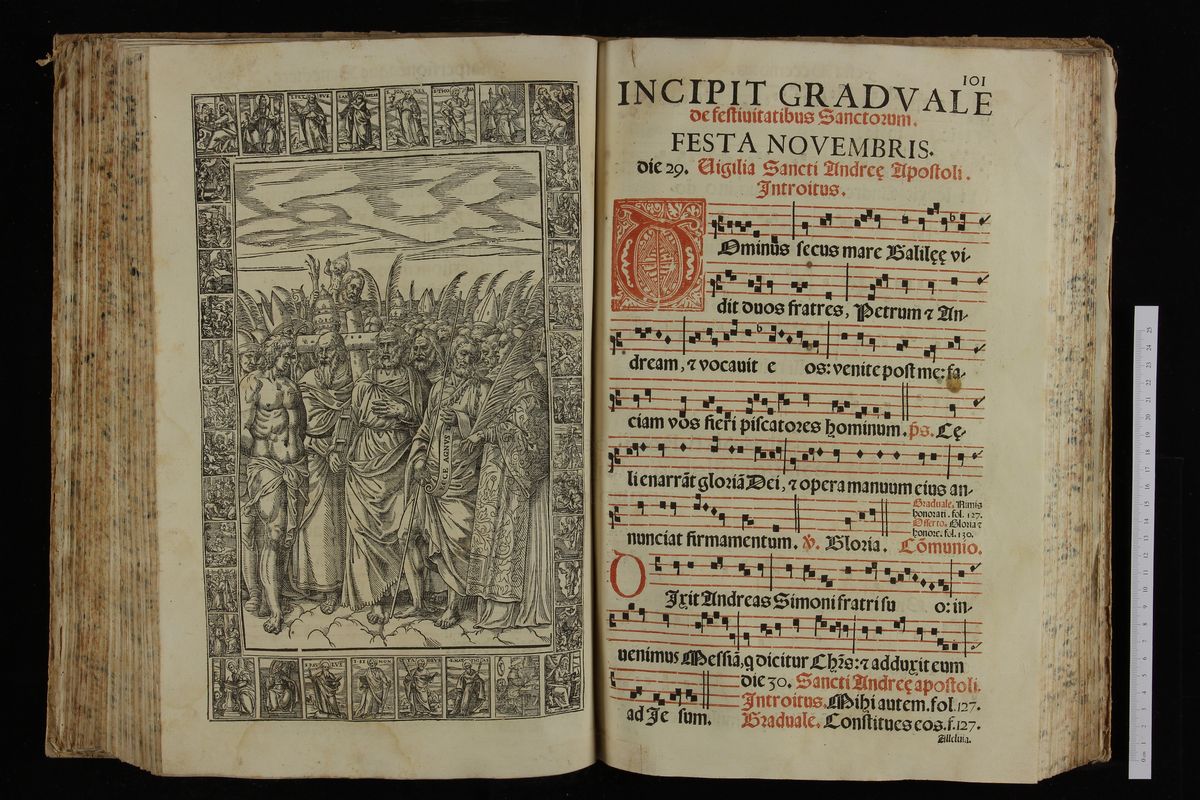 CE AGNVS
101
INCIPIT GRADVALE
de festiuitatibus Sanctorum.
FESTA NOVEMBRIS.
die 29. Uigilia Sancti Andreę Apostoli.
Introitus.
DOminus secus mare Galilęę vi-
dit duos fratres, Petrum ⁊ An-
dream, ⁊ vocauit e os: venite post me: fa-
ciam vos fieri piscatores hominum. p̄s. Cę-
li enarrāt gloriā Dei, ⁊ opera manuum eius an-
Graduale. Nimis
honorati. fol. 127.
Offerto. Gloria ⁊
honore. fol. 130.
nunciat firmamentum. ℣. Gloria. Cōmunio.
DIxit Andreas Simoni fratri su o: in-
uenimus Messiā, q̄ dicitur Chr̄s: ⁊ adduxit eum
die 30. Sancti Andreę apostoli.
Introitus. Mihi autem. fol. 127.
ad Je sum. Graduale. Constitues eos. f. 127.
Alleluia.